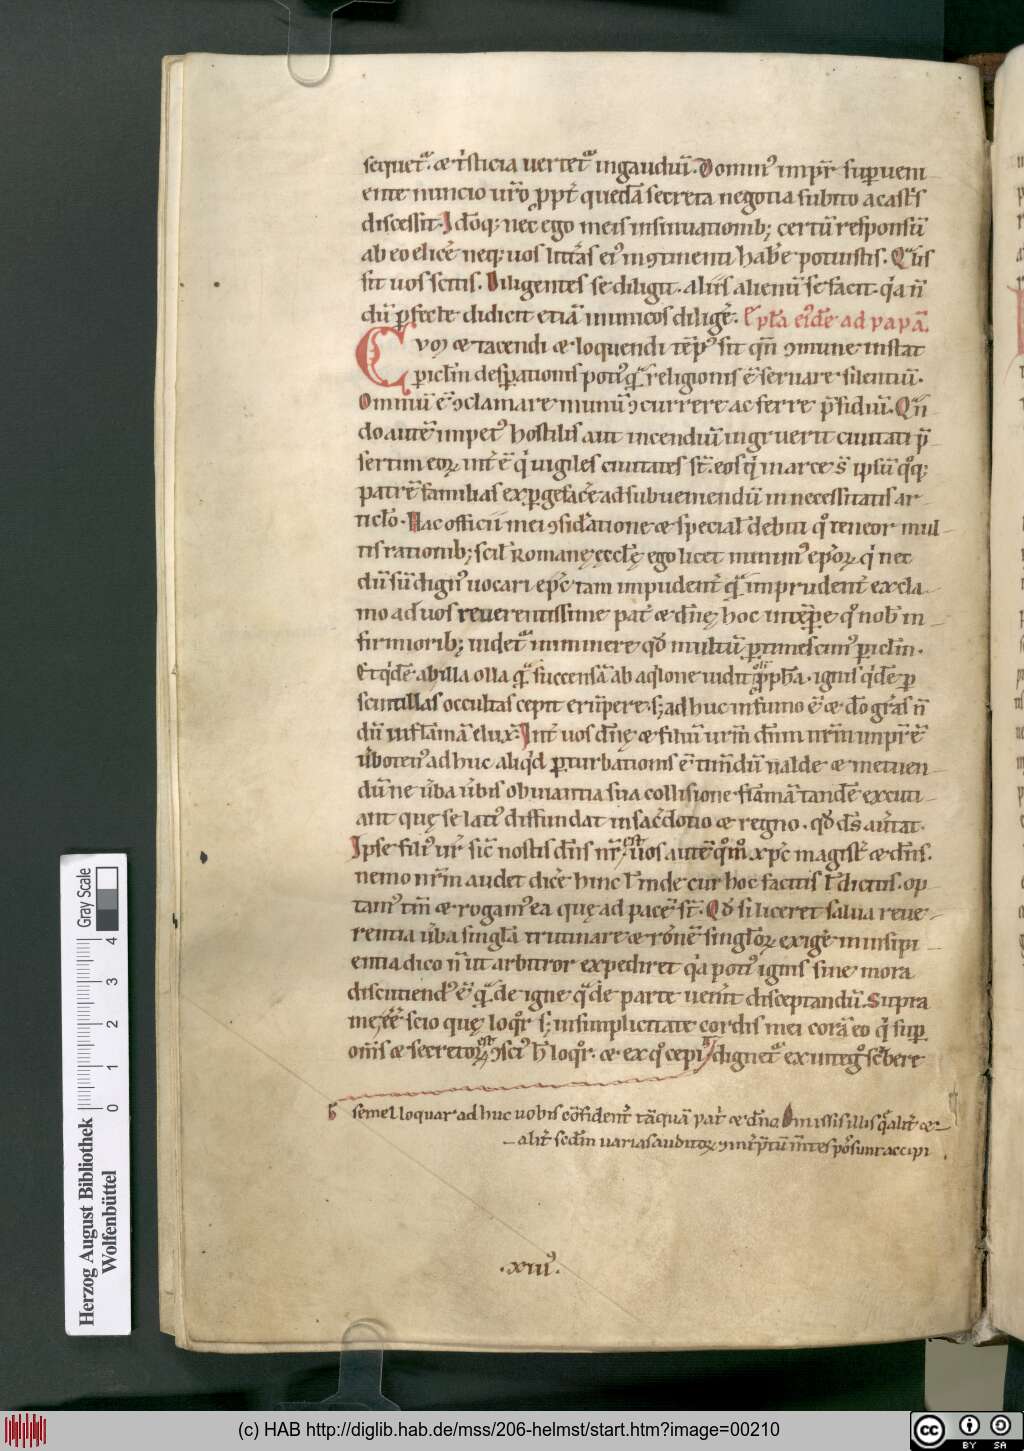 sequet᷑. & tͥsticia uertet᷑ ingaudiū. Dominꝰ impr̄ suꝑueni
ente nuncio ur̄o ꝓpt̄ quedā secreta negotia subito acastͥs
discessit. Idōq; nec ego meis insinuationib; certū responsū
ab eo elicē neq; uos litt̄as eiꝰ in ꝯtinenti hab̄e potuistis. Qͣlis
sit uos scitis. Diligentes se diligit. aliis alienū se facit. qͥa n̄
dū ꝑfecte didicit etiā inimicos diligē. Epl̄a eiꝰdē ad papā.
Cvm & tacendi & loquendi tēpꝰ sit qn̄ ꝯmune instat
ꝑicl̄m desꝑationis potiꝰ qͣ religionis ē seruare silentiū.
Omniū ē ꝯclamare inunū ꝯcurrere ac ferre p̄sidiū. Qn̄
do autē impetꝰ hostilis aut incendiū ingruerit ciuitati p̄
sertim eoꝝ int̄ ē qͥ uigiles ciuitates st̄. eos qͥ in arce s̄ ipsū qͦq;
patrē familias exꝑgefacē ad subueniendū in necessitatis ar
ticl̄o. Hac officii mei ꝯsid̄atione & special̄ debiti qͦ teneor mul
tis rationib; scil̄ Romanę ęccl̄ę ego licet minimꝰ ep̄oꝝ qͥ nec
dū sū dignꝰ uocari ep̄c tam impudent̄ qͣ imprudent̄ excla
mo ad uos reuerentissime pat̄ & dn̄ę hoc intēpe qͦ nob̄ in
firmiorib; uidet᷑ imminere qd̄ multū ꝑtimescimꝰ ꝑicl̄m.
Et qͥdē ab illa olla qͣ succensā ab aqͥlone uidit ꝓph̄a. ignis qͥdē ꝑ
scintillas occultas cepit erūpere. s; adhuc in fumo ē & dō grās n̄
dū in flāmā eluxͭ. Int̄ uos dn̄ę & filiū urm̄ dn̄m nrm̄ impr̄ē
ūbotenꝰ adhuc aliqͥd ꝑturbationis ē tim̄dū ualde & metuen
dū ne ūba ūbis obuiantia sua collisione flāmā tandē excuti
ant quę se latiꝰ diffundat in sac̄dotio & regno. qd̄ ds̄ aūtat.
Ipse filiꝰ ur̄ sic̄ nostis dn̄s nr̄ ē. uos autē qͦm xp̄c magist̄ & dn̄s.
nemo nrm̄ audet dicē hinc l̄ inde cur hoc facitis l̄ dicitis. op
tamꝰ tm̄ & rogamꝰ ea quę ad pacē st̄. Qd̄ si liceret salua reue
rentia ūba singl̄a trutinare & rōnē singl̄oꝝ exigē in insipi
entia dico n̄ ut arbitror expediret qͥa potiꝰ ignis sine mora
discutiendꝰ ē qͣ de igne qͣ de parte uen̄it disceptandū. Supra
me ēē scio quę loqͦr s; in simplicitate cordis mei corā eo qͥ suꝑ
om̄s & secretoꝝ est ꝯsciꝰ h̄ loqͦr. & ex qͦ cepi dignet᷑ ex integͦ sc̄bere
semel loquar adhuc uobis cōfident̄ tāquā pat̄ & dn̄o. Omissis illis qͣlit̄ &
alit̄ sedm̄ uarias auditoꝝ ꝯ int̄p̄tū m̄tes pōsunt accipi
.xiiiꝰ.
Herzog August Bibliothek
Wolfenbüttel
0 1 2 3 4
Gray Scale
(c) HAB http://diglib.hab.de/mss/206-helmst/start.htm?image=00210
cc BY SA